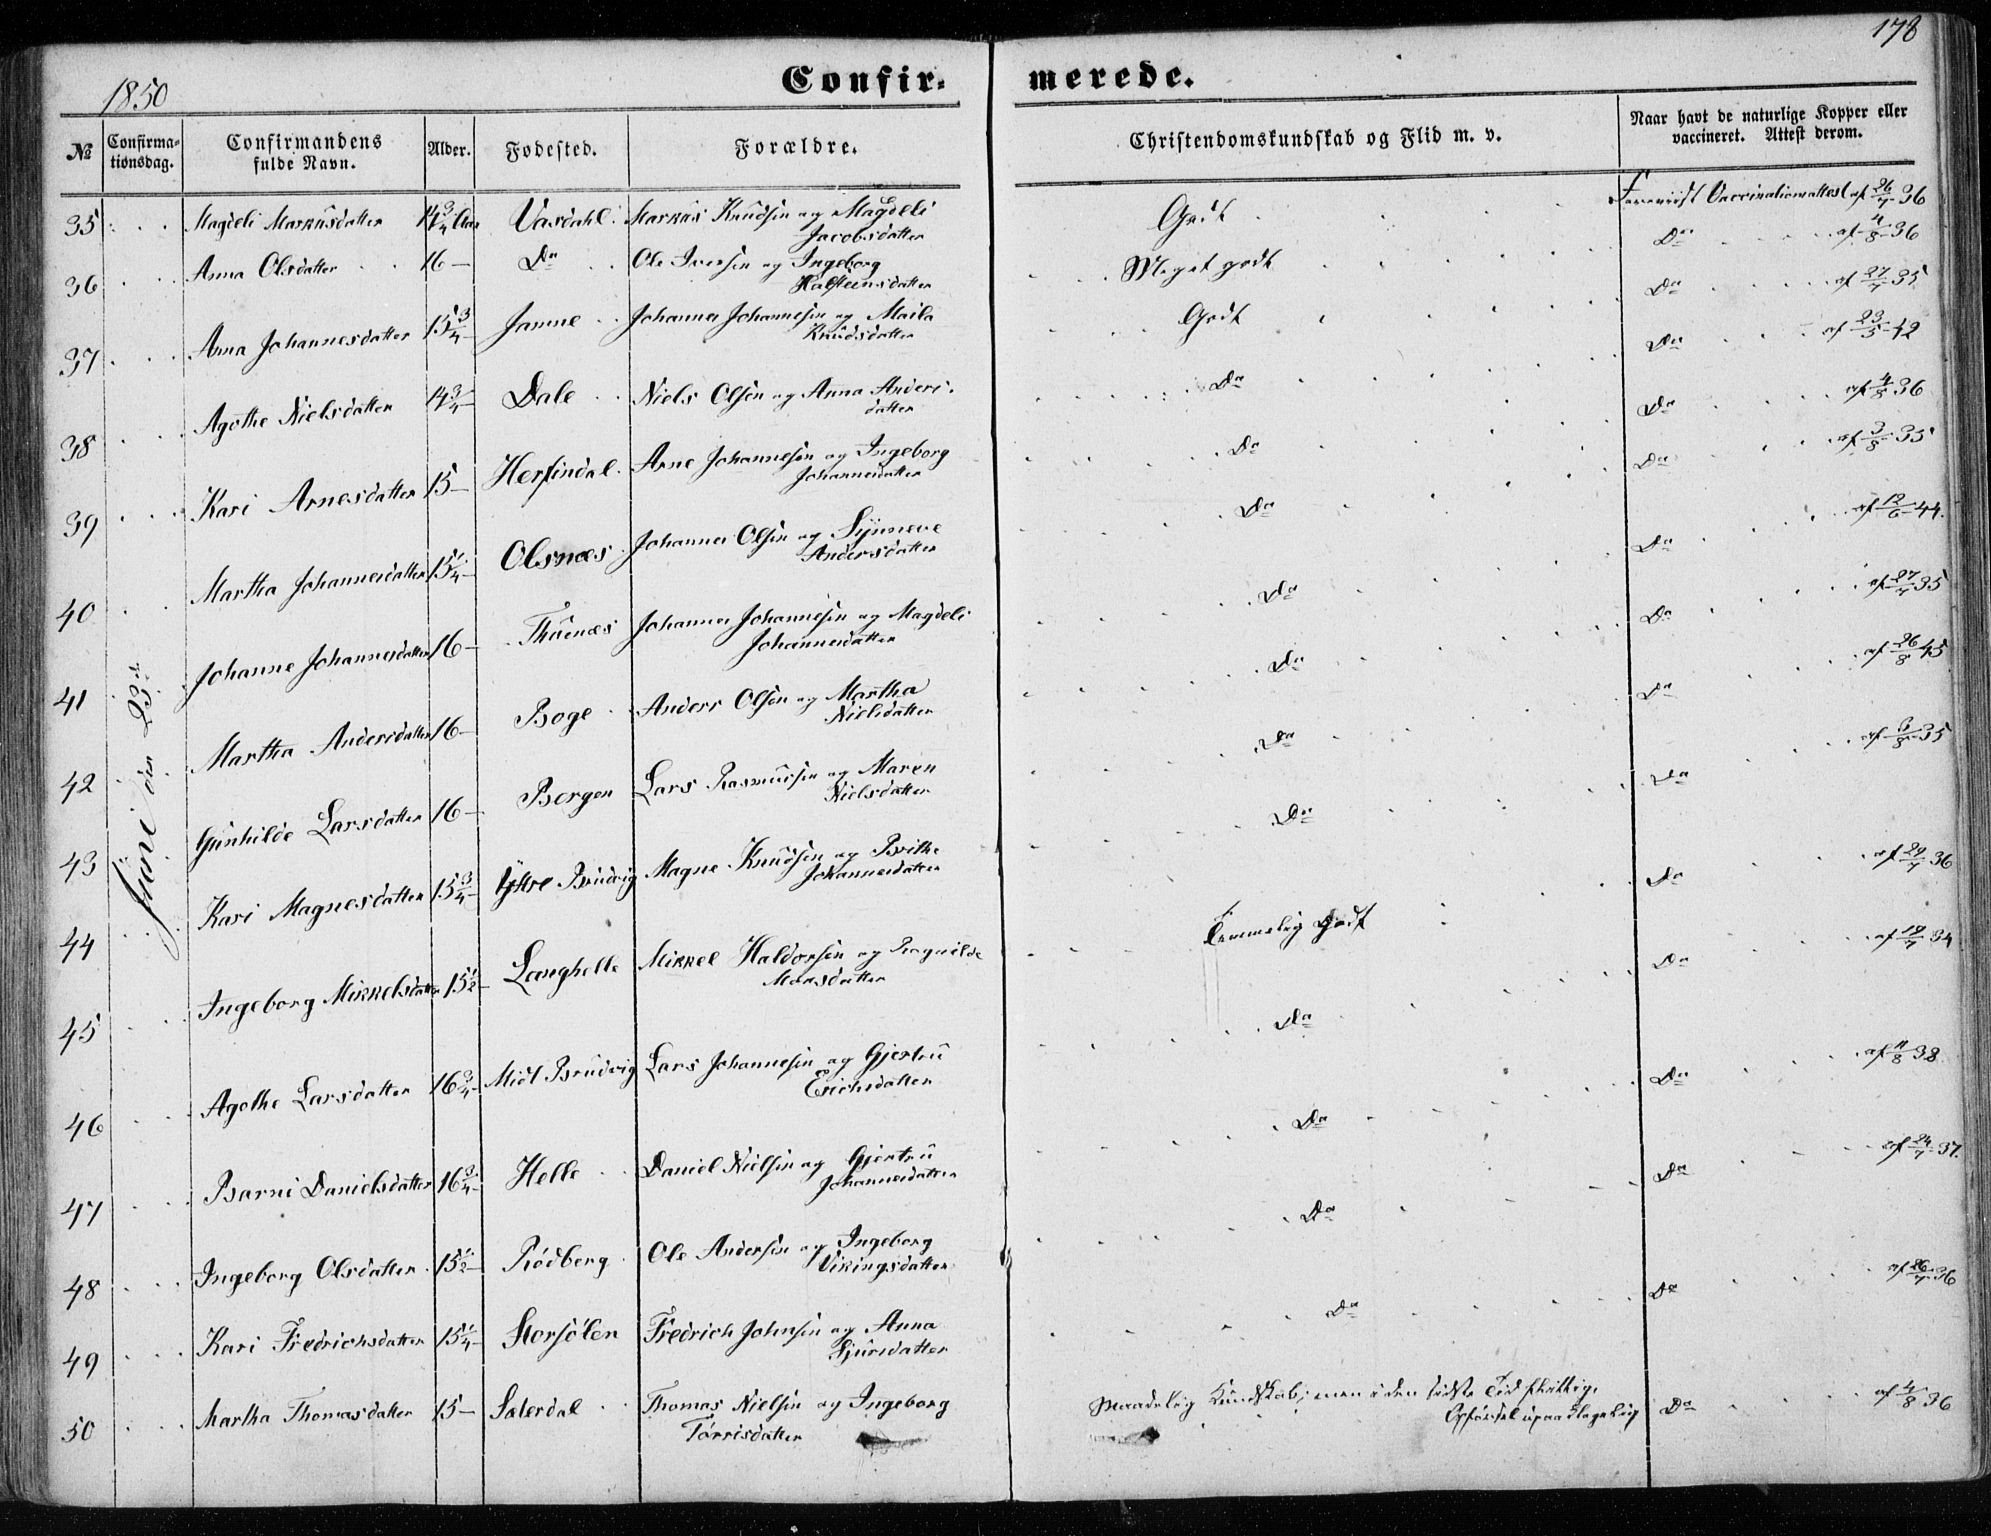 178
1850
Confir-
merede.
№ Confirma-tionsdag. Confirmandens fulde Navn. Alder. Fødested. Forældre. Christendomskundskab og Flid m. v. Naar havt de naturlige Kopper eller vaccineret. Attest derom.
Juni den 23de
35 Magdeli Markusdatter 14 3/4 Aar Vasdahl Markus Knudsen og Magdeli Godt Foreviist Vaccinationsattest af 26/7 36
Jacobsdatter
36 Anna Olsdatter 16 — Do Ole Iversen og Ingeborg Meget godt Do af 4/8 36
Halsteensdatter
37 Anna Johannesdatter 15 3/4 — Jamne Johannes Johannesen og Maila Godt Do af 27/7 35
Knudsdatter
38 Agothe Nielsdatter 14 3/4 — Dale Niels Olsen og Anna Anders- Do Do af 23/5 42
datter
39 Kari Arnesdatter 15 — Herfindal Arne Johannesen og Ingeborg Do Do af 4/8 36
Johannesdatter
40 Martha Johannesdatter 15 1/4 — Olsnæs Johannes Olsen og Synneve Do Do af 3/8 35
Andersdatter
41 Johanne Johannesdatter 16 — Thuenæs Johannes Johannesen og Magdeli Do Do af 12/6 44
Johannesdatter
42 Martha Andersdatter 16 — Boge Anders Olsen og Martha Do Do af 27/7 35
Nielsdatter
43 Gunhilde Larsdatter 16 — Bergen Lars Rasmusen og Maren Do Do af 26/8 45
Nielsdatter
44 Kari Magnesdatter 15 3/4 — Yttre Brudvig Magne Knudsen og Brithe Do Do 35
Johannesdatter
45 Ingeborg Mikkelsdatter 15 1/2 — Langhelle Mikkel Haldorsen og Ragnilde Temmelig Godt Do af 29/7 36
Monsdatter
46 Agothe Larsdatter 16 3/4 — Midt Brudvig Lars Johannesen og Gjertru Do Do af 19/7 34
Erichsdatter
47 Barni Danielsdatter 16 3/4 — Helle Daniel Nielsen og Gjertru Do Do af 11/8 38
Johannesdatter
48 Ingeborg Olsdatter 15 1/2 — Rødberg Ole Andersen og Ingeborg Do Do af 24/7 37
Vikingsdatter
49 Kari Fredrichsdatter 15 1/4 — Storsølen Fredrich Johnsen og Anna Do Do af 26/7 36
Sjursdatter
50 Martha Thomasdatter 15 — Solerdal Thomas Nielsen og Ingeborg Maadelig Kundskab; men i den sidste Tid flittig. Do af 4/8 36
Torrisdatter Opførsel upaaklagelig